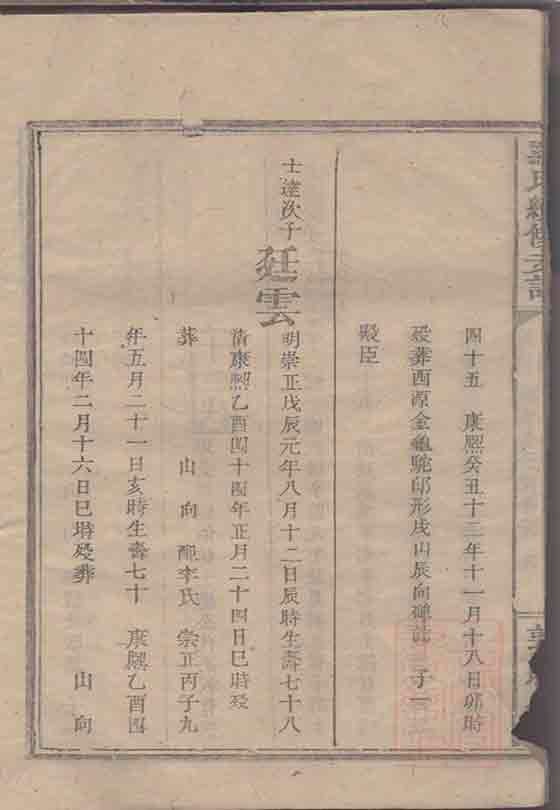 氏續修支譜
四十五 康熙癸丑十二年十一月十八日卯時
殁葬西源金龜駝印形戌山辰向碑誌 子一
殿臣
士達次子 廷雲 明崇正戊辰元年八月十二日辰時生壽七十八
清康熙乙酉四十四年正月二十四日巳時殁
葬 山 向 配李氏 崇正丙子九
年五月二十一日亥時生壽七十 康熙乙酉四
十四年二月十六日巳時殁葬 山 向